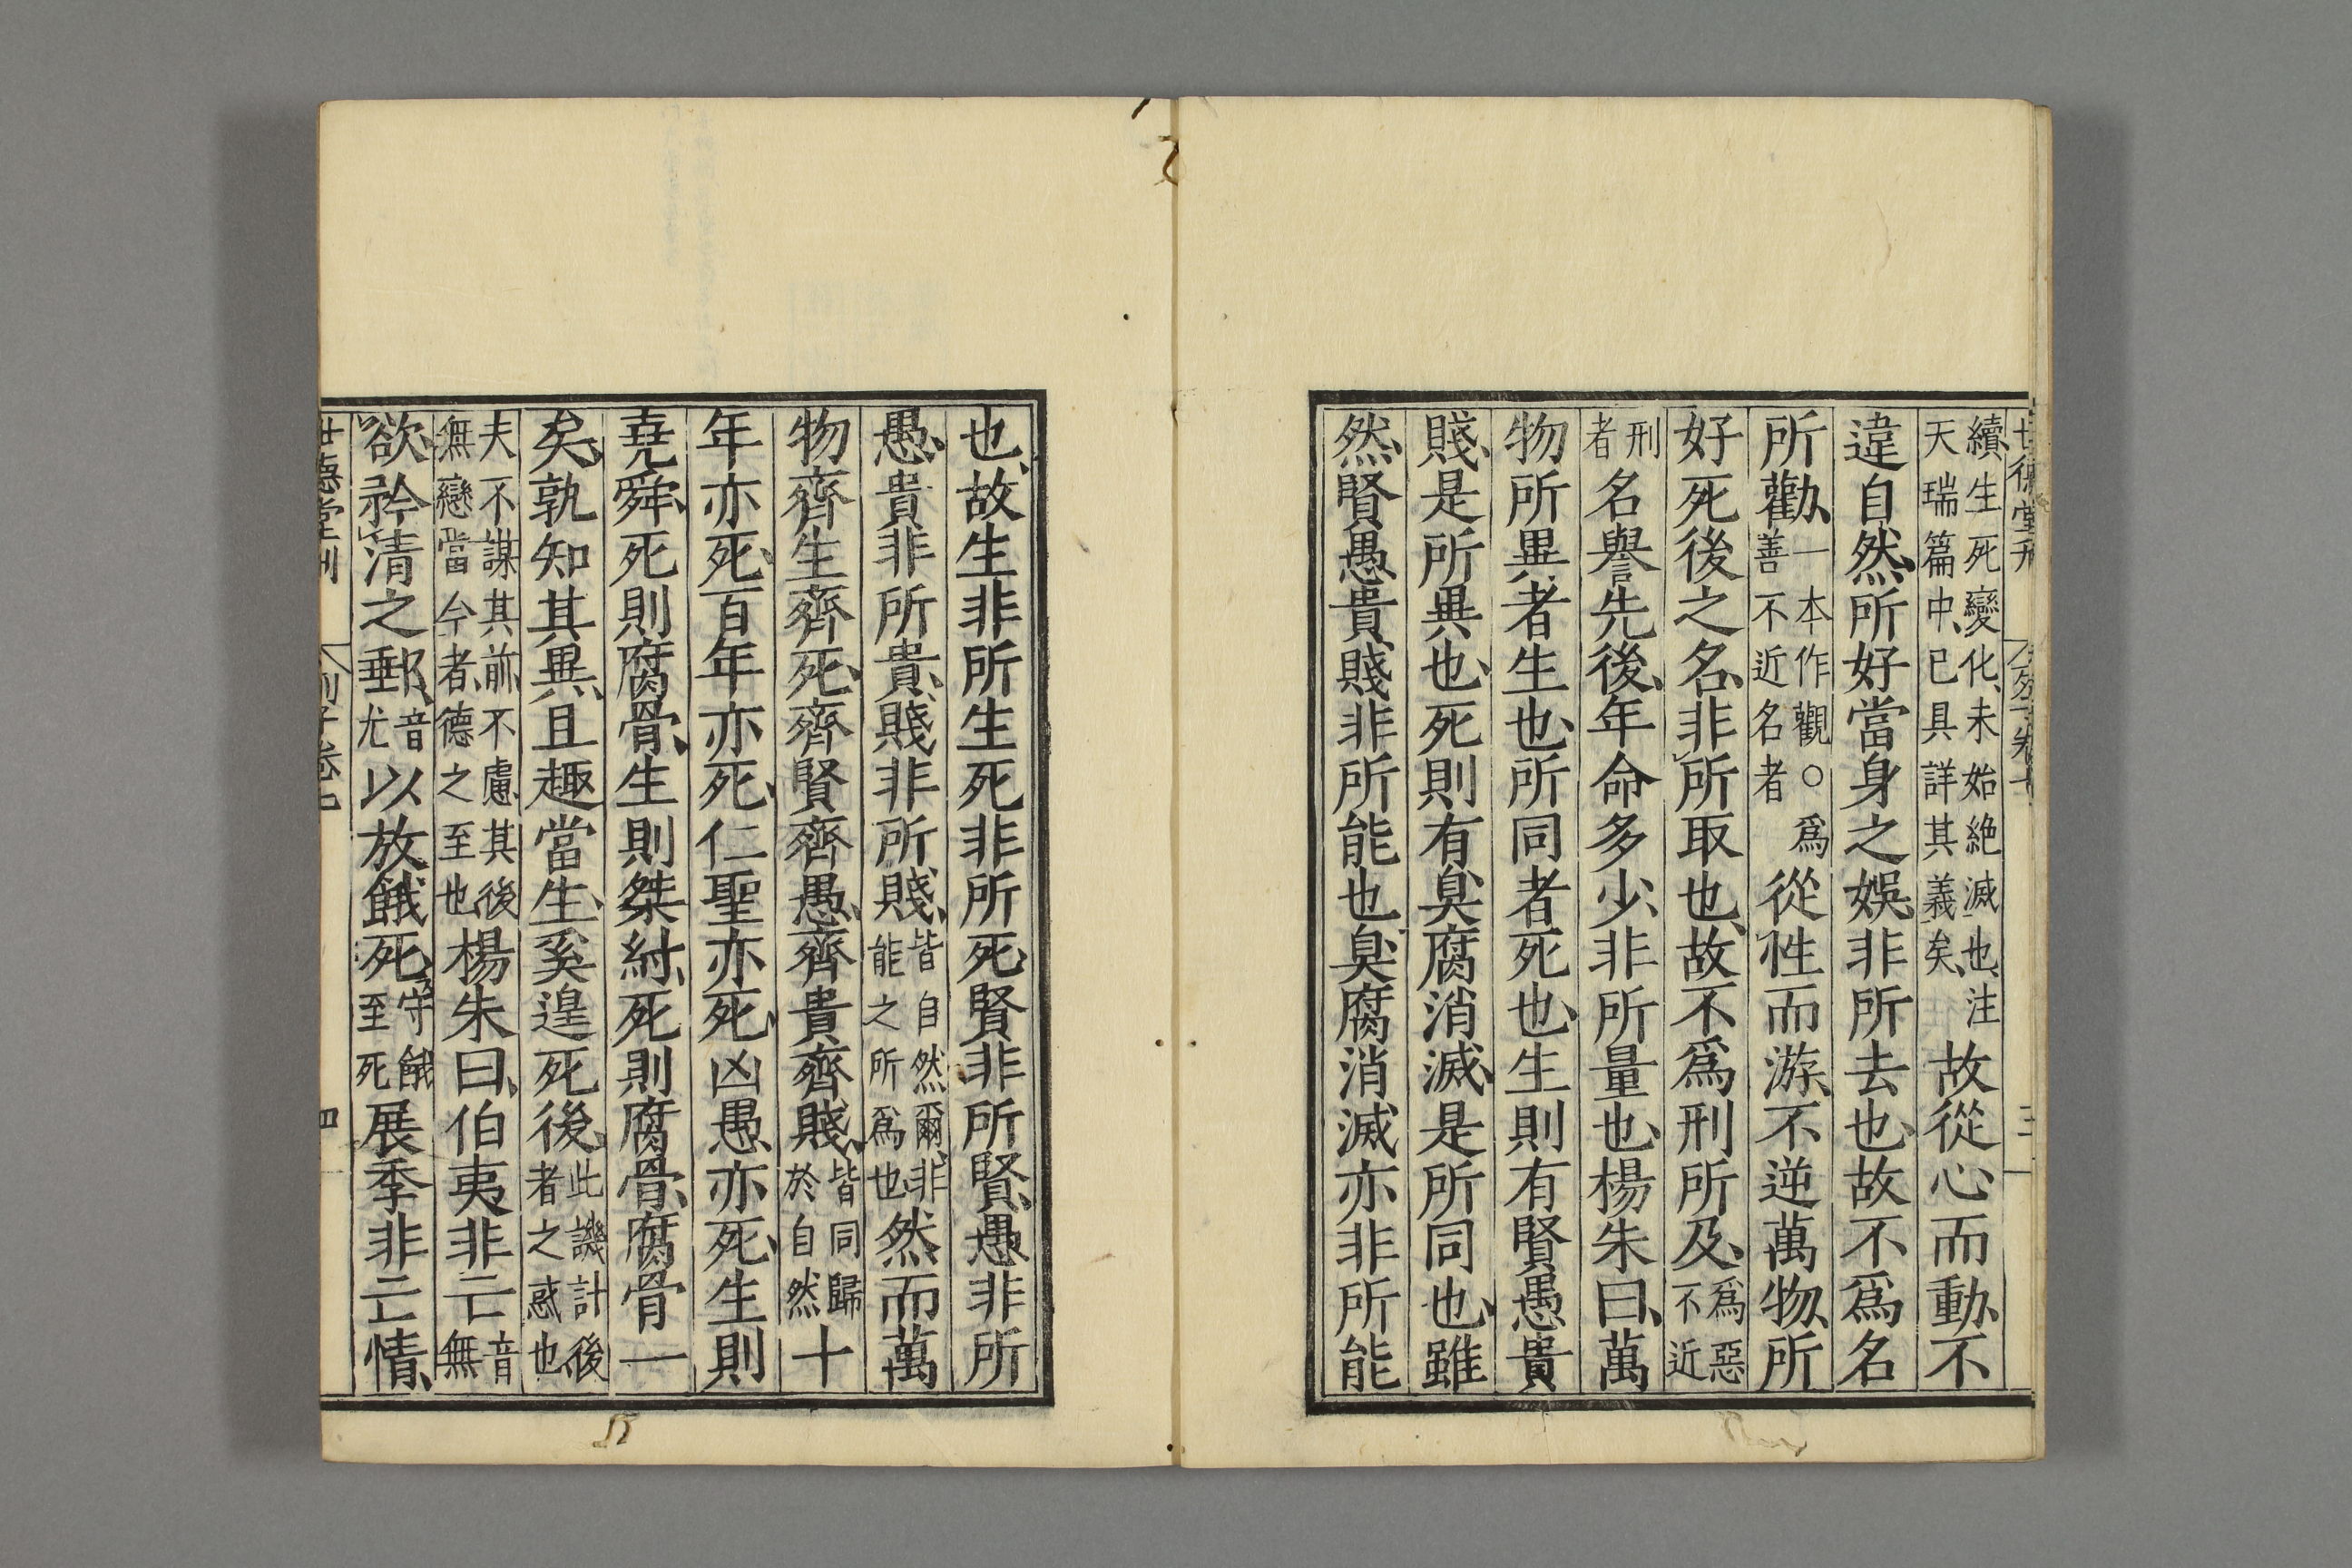 續、生死變化、未始絶滅也、注
天瑞篇中、已具詳其義矣、
故從心而動、不
違自然、所好當身之娛、非所去也、故不爲名
所勸、
一本作觀○爲
善不近名者
從性而游、不逆萬物、所
好死後之名、非所取也、故不爲刑所及、
爲惡
不近
刑
者
名譽先後、年命多少、非所量也、楊朱曰、萬
物所異者生也、所同者死也、生則有賢愚貴
賤、是所異也、死則有臭腐消滅、是所同也、雖
然、賢愚貴賤非所能也、臭腐消滅亦非所能
也、故生非所生死非所死賢非所賢、愚非所
愚、貴非所貴、賤非所賤、
皆自然爾、非
能之所爲也、
然而萬
物齊生齊死、齊賢齊愚、齊貴齊賤、
皆同歸
於自然
十
年亦死、百年亦死、仁聖亦死、凶愚、亦死、生則
堯舜、死則腐骨、生則桀紂、死則腐骨、腐骨一
矣、孰知其異、且趣當生、奚遑死後、
此譏計後
者之惑也
夫不謀其前、不慮其後
無戀當今者、德之至也
楊朱曰、伯夷非亡
音
無
欲、矜清之郵、
音
尤
以放餓死、
守餓
至死
展季非亡情、
世德堂刊
列子卷七
四